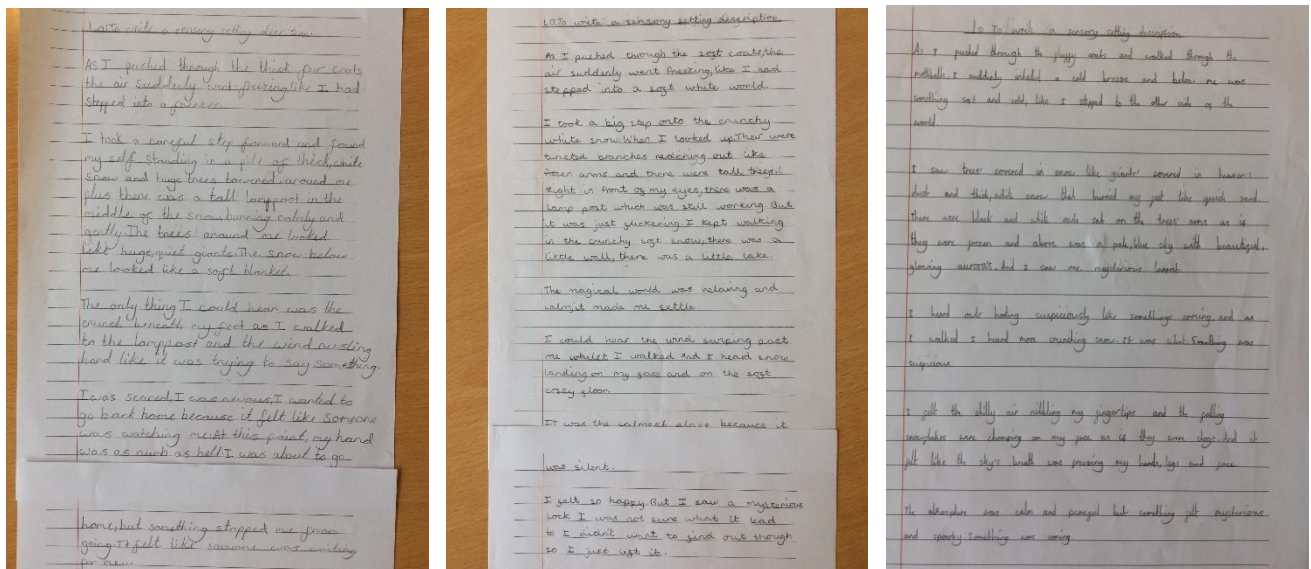 L.O.To write a sensory setting description
As I pushed through the thick fur coats
the air suddenly went freezing,like I had
stepped into a freezer.
I took a careful step forward and found
my self standing in a pile of thick,white
snow and huge trees towered around me
plus there was a tall lamppost in the
middle of the snow burning calmly and
gently.The trees around me looked
like huge,quiet giants.The snow below
me looked like a soft blanket.
The only thing I could hear was the
crunch beneath my feet as I walked
to the lamppost and the wind rustling
hard like it was trying to say something.
I was scared,I was nervous,I wanted to
go back home because it felt like someone
was watching me.At this point,my hand
was as as hell I was about to go
home,but something stopped me from
going.It felt like someone was waiting
for me...
L.O.To write a sensory setting description
As I pushed through the soft coats,the
air suddenly went freezing,like I had
stepped into a soft white world.
I took a big step onto the crunchy
white snow.When I looked up.Their were
twisted branches reaching out like
frozen arms and there were tall trees.
Right in front of my eyes,there was a
lamp post which was still working.But
it was just flickering I kept walking
in the crunchy soft snow,there was a
little wall,there was a little lake.
The magical world was relaxing and
calm,it made me settle.
I could hear the wind past
me whilst I walked And I heard snow
landing on my face and on the soft
floor.
It was the calmest place because it
was silent.
I felt so happy.But I saw a mysterious
lock I was not sure what it lead
to I didn't want to find out though
so I just left it.
L.O To write a sensory setting description
As I pushed through the coats and walked through the
mothballs,I suddenly inhaled a cold breeze and below me was
something soft and cold, like I stepped to the other side of the
world.
I saw trees covered in snow like giants covered in heaven's
dust and thick,white snow that buried my feet like quick sand.
There were black and white owls sat on the trees' arms as if
they were frozen and above was a pale,blue sky with beautiful,
glowing aurora's.And I saw one mysterious
I heard owls suspiciously like something's coming,and as
I walked I heard more crunching snow.It was Something was
suspicious.
I felt the chilly air nibbling my fingertips and the falling
snowflakes were on my face as if they were dogs.And it
felt like the sky's breath was freezing my hands,legs and face.
The atmosphere was calm and peaceful but something felt mysterious
and spooky.Something was coming.